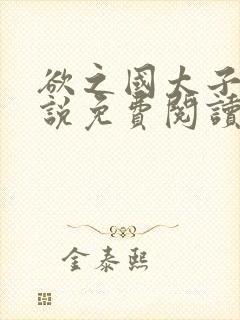 欲之國大子
說免費閱讀
金泰熙